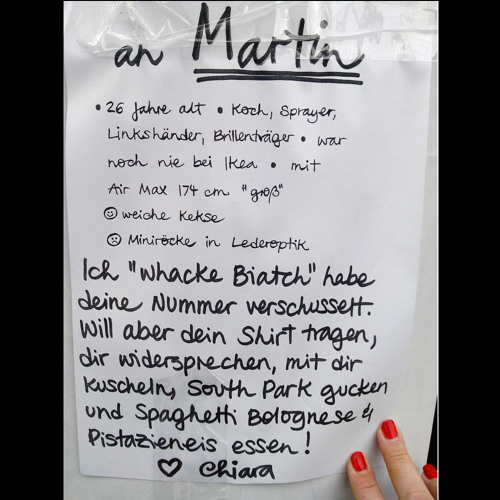 an Martin
• 26 Jahre alt • Koch, Sprayer,
Linkshänder, Brillenträger • war
noch nie bei Ikea • mit
Air Max 174 cm "groß"
☺ weiche Kekse
☹ Miniröcke in Lederoptik
Ich "Whacke Biatch" habe
deine Nummer verschusselt.
Will aber dein Shirt tragen,
dir widersprechen, mit dir
kuscheln, South Park gucken
und Spaghetti Bolognese &
Pistazieneis essen!
♡ Chiara